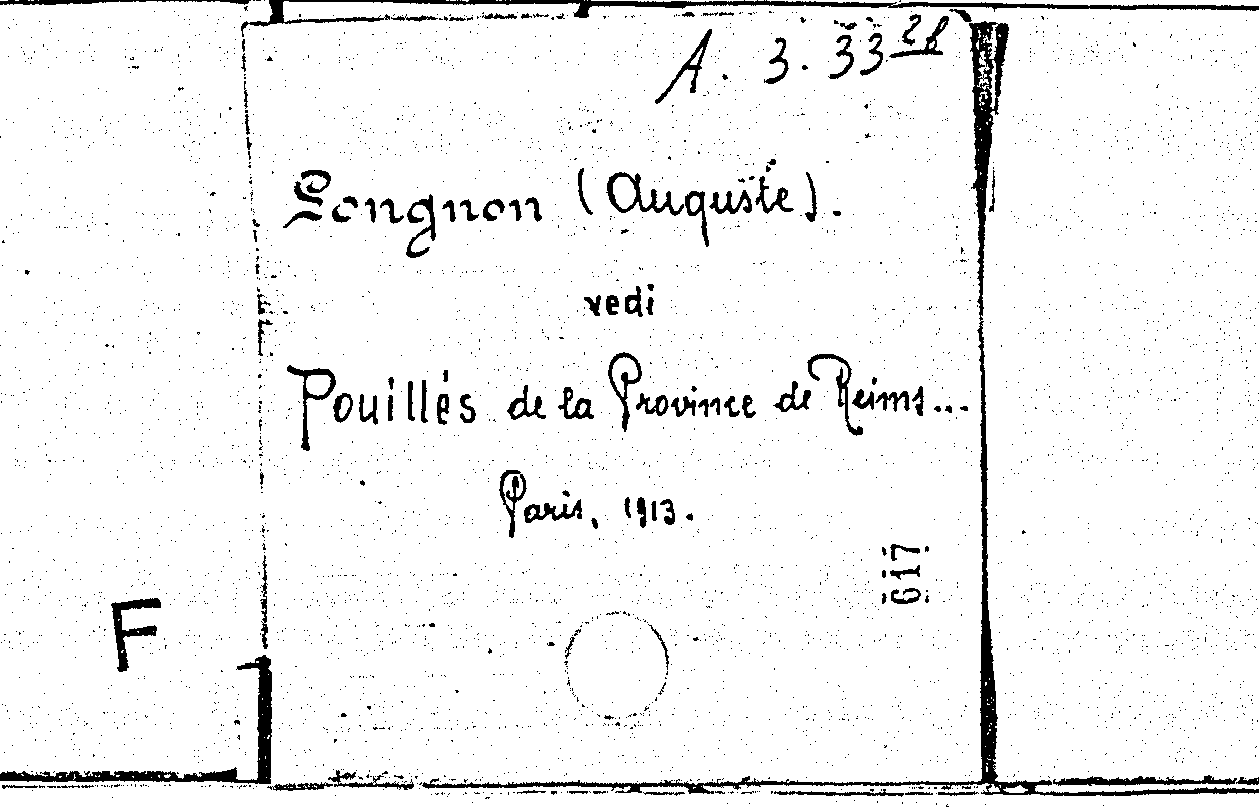 A. 3. 33 2b
Longnon (Auguste).
vedi
Pouillés de la Province de Reims...
Paris, 1913.
617
F